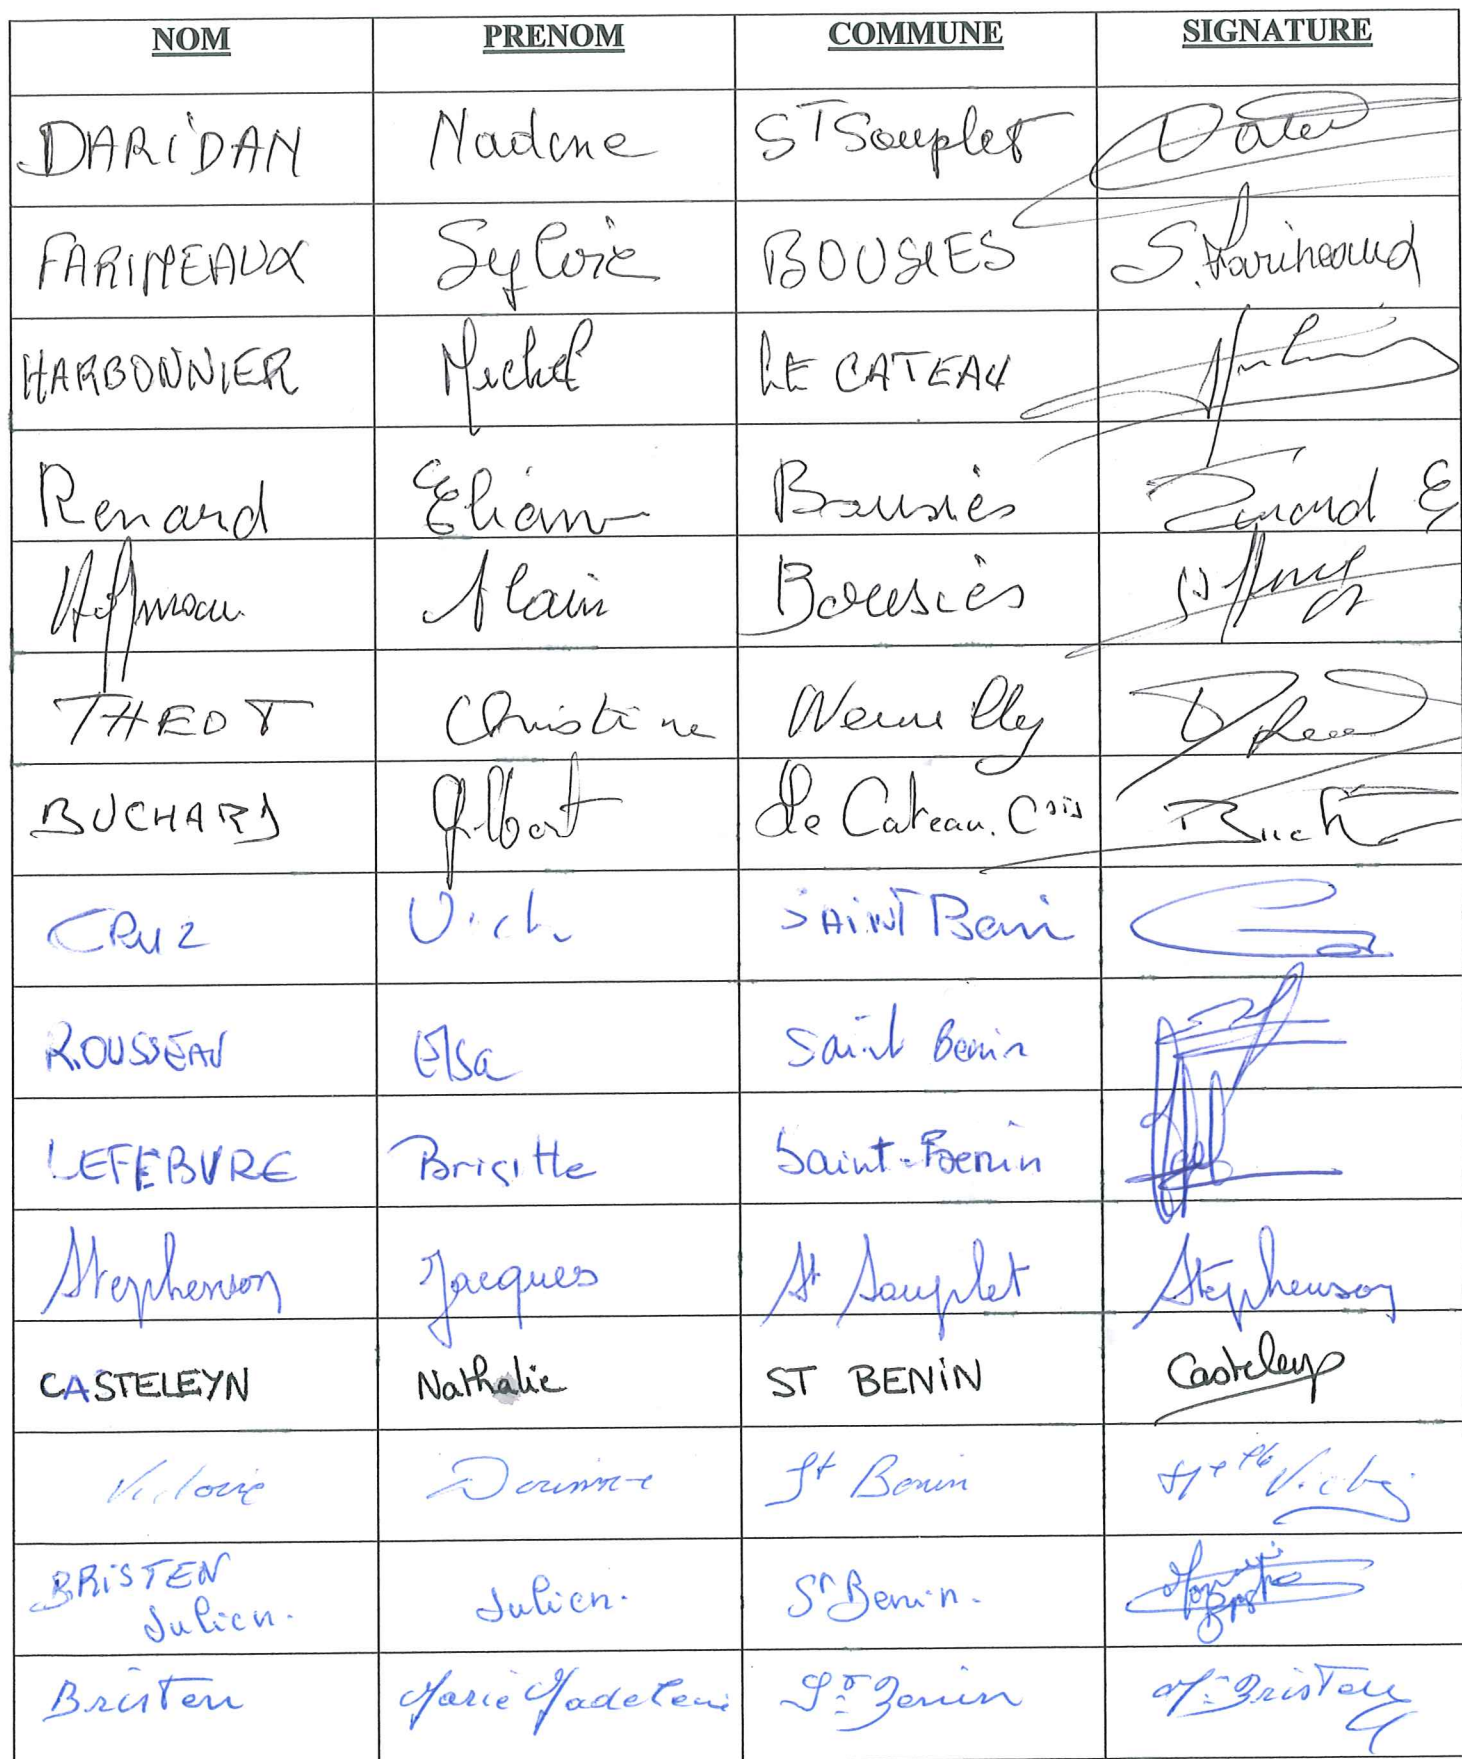 NOM PRENOM COMMUNE SIGNATURE
DARIDAN Nadine ST Souplet
FARINEAUX Sylvie BOUSIES S. Farineaux
HARBONNIER Michel LE CATEAU
Renard Eliane Bousiès Renard E
Hoffmann Alain Bousiès
THEOT Christine Neuvilly
BUCHARD Gilbert Le Cateau. Csis
CRUZ SAINT Benin
ROUSSEAU Elsa Saint Benin
LEFEBVRE Brigitte Saint-Benin
Stephenson Jacques St Souplet Stephenson
CASTELEYN Nathalie ST BENIN Casteleyn
Victoire St Benin
BRISTEN
Julien. Julien. St Benin.
Bristen Marie Madeleine St Benin M. Bristen